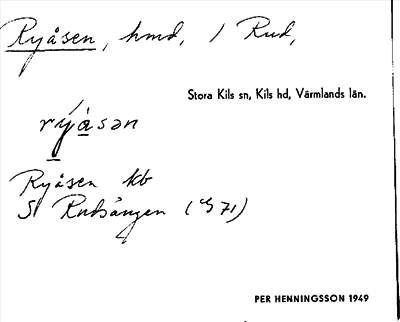 Ryåsen, hmd, / Rud,
Stora Kils sn, Kils hd, Värmlands län.
rýåsən
Ryåsen kb
Sl Rudsängen ( 71)
PER HENNINGSSON 1949